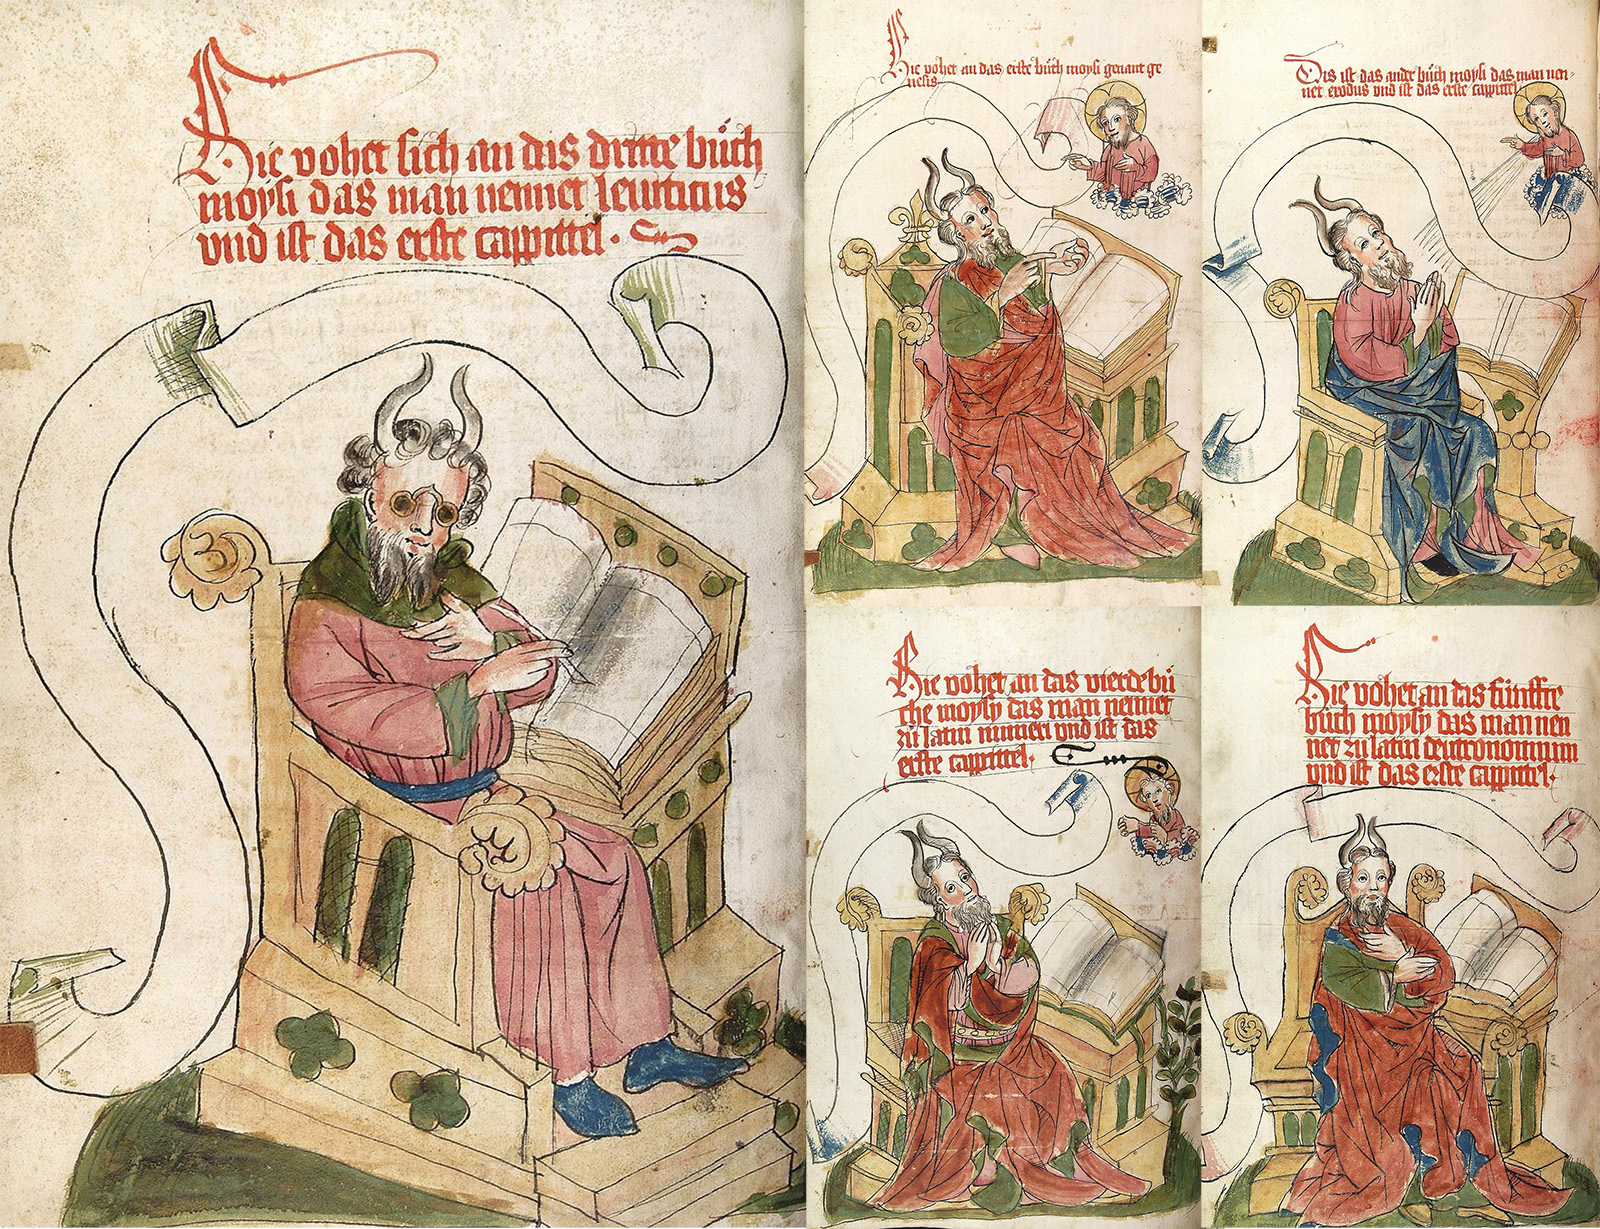 Hie vohet sich an das dritte bůch
moysi das man nennet leuiticus
vnd ist das erste cappittel.
Hie vohet an das erste bůch moysi genant ge
nesis
Dis ist das ander bůch moysi das man nen-
net exodus vnd ist das erste cappittel
Hie vohet an das vierde bů
che moysy das man nennet
zů latin numeri vnd ist das
erste cappittel.
Hie vohet an das fünffte
bůch moysy das man nen
net zů latin deutronomium
vnd ist das erste cappittel.